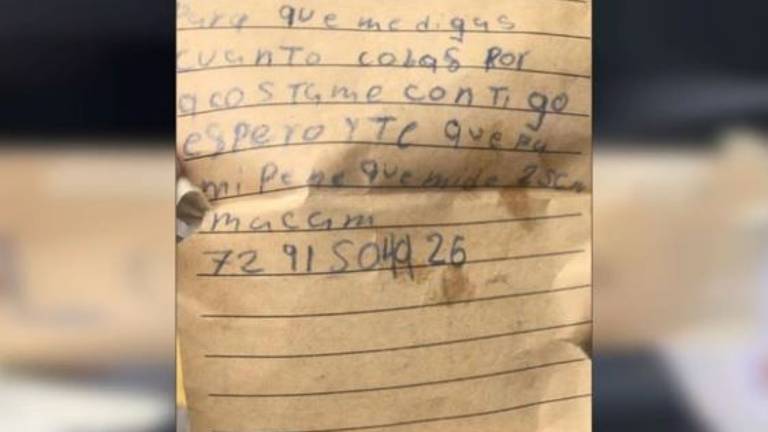 Para que me digas
cuanto cobas por
acostame contigo
espero y te quepa
mi pene que mide 25cm
macam
72 91 50 49 26